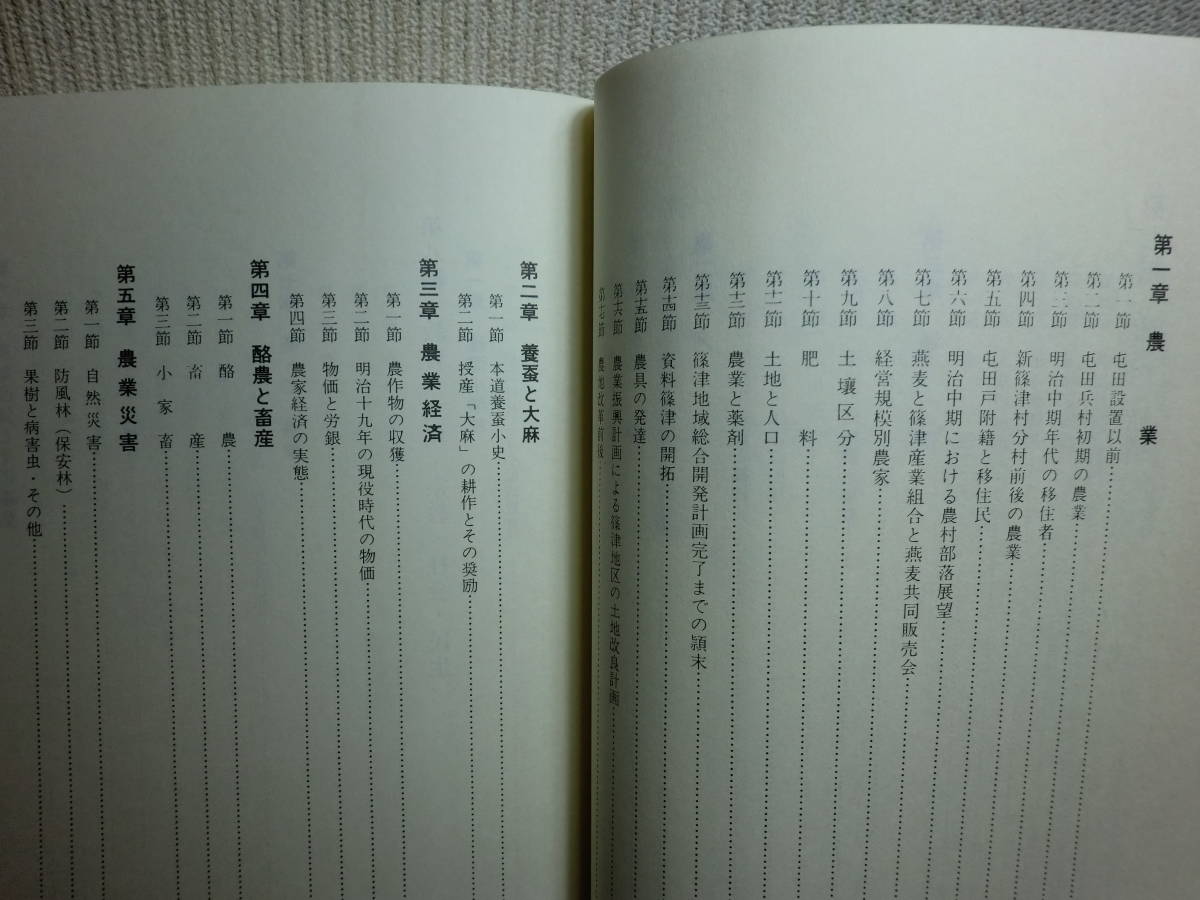 第一章 農業
第一節 屯田設置以前
第二節 屯田兵村初期の農業
第三節 明治中期年代の移住者
第四節 新篠津村分村前後の農業
第五節 屯田戸附籍と移住民
第六節 明治中期における農村部落展望
第七節 燕麦と篠津産業組合と燕麦共同販売会
第八節 経営規模別農家
第九節 土壌区分
第十節 肥料
第十一節 土地と人口
第十二節 農業と薬剤
第十三節 篠津地域総合開発計画完了までの顛末
第十四節 資料篠津の開拓
第十五節 農具の発達
第十六節 農業振興計画による篠津地区の土地改良計画
第十七節 農地改革前後
第二章 養蚕と大麻
第一節 本道養蚕小史
第二節 授産「大麻」の耕作とその奨励
第三章 農業経済
第一節 農作物の収穫
第二節 明治十九年の現役時代の物価
第三節 物価と労銀
第四節 農家経済の実態
第四章 酪農と畜産
第一節 酪農
第二節 畜産
第三節 小家畜
第五章 農業災害
第一節 自然災害
第二節 防風林(保安林)
第三節 果樹と病害虫・その他